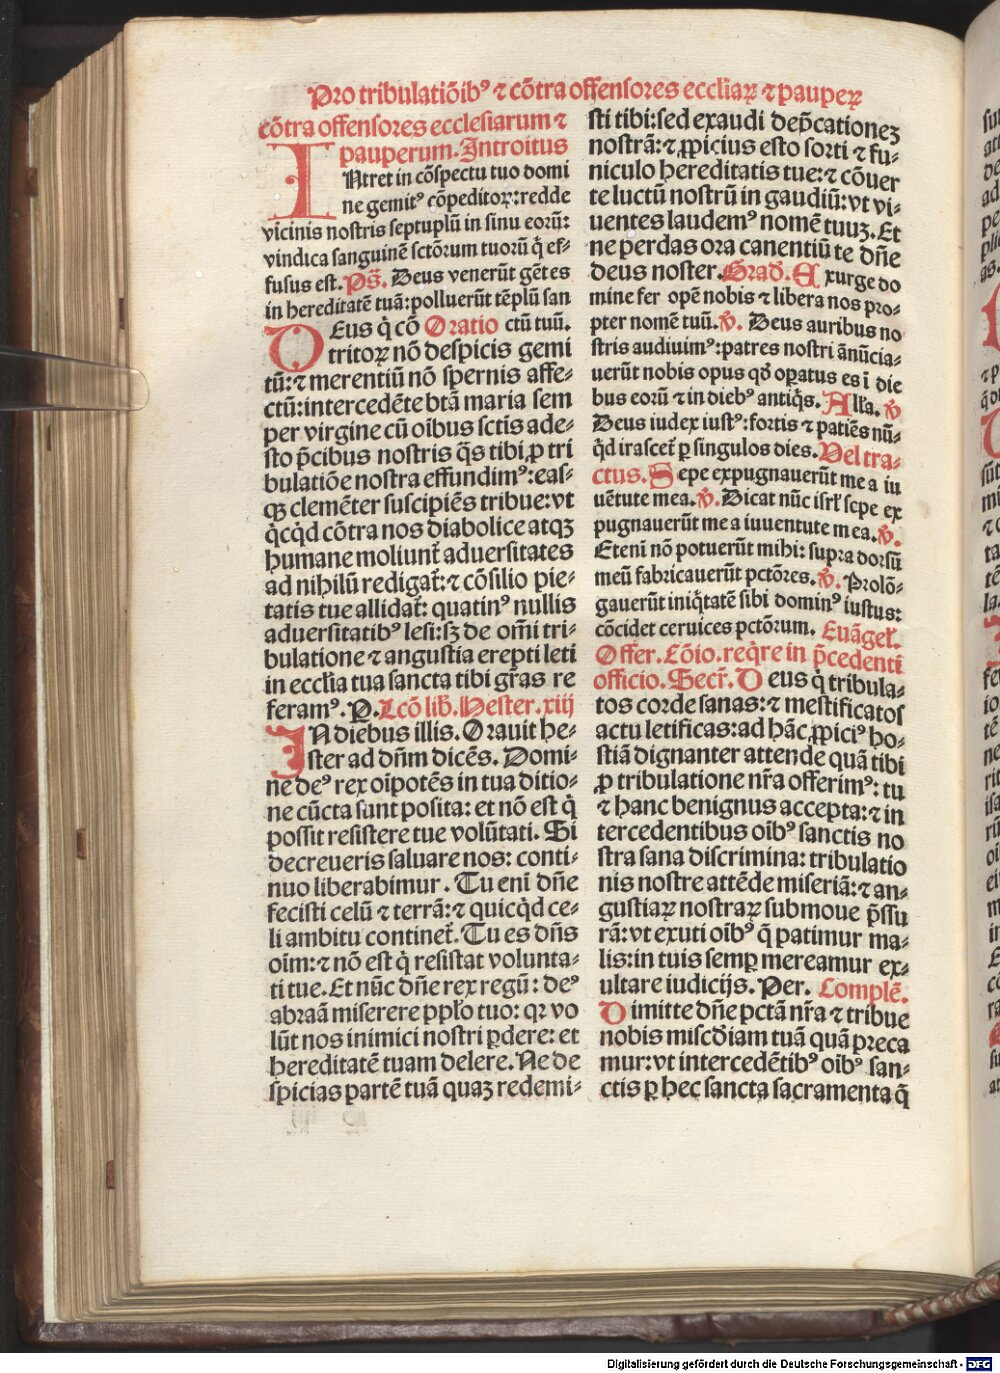 Pro tribulatiōibꝰ ⁊ cōtra offensores eccliaꝝ ⁊ pauperꝝ
cōtra offensores ecclesiarum ⁊
pauperum. Introitus
INtret in cōspectu tuo domi
ne gemitꝰ cōpeditoꝝ: redde
vicinis nostris septuplū in sinu eorū:
vindica sanguinē sctōrum tuorū q̇ ef-
fusus est. Ps̄. Deus venerūt gētes
in hereditatē tuā: polluerūt tēplū san
ctū tuū. Oratio
DEus q̇ cō
tritoꝝ nō despicis gemi
tū: ⁊ merentiū nō spernis affe-
ctū: intercedēte btā maria sem
per virgine cū oībus sctis ade-
sto p̄cibus nostris q̄s tibi ꝓ tri
bulatiōe nostra effundimꝰ: eas-
qꝫ clemēter suscipiēs tribue: vt
q̇cq̇d cōtra nos diabolice atqꝫ
humane moliunt᷑ aduersitates
ad nihilū redigat᷑: ⁊ cōsilio pie-
tatis tue allidat᷑: quatinꝰ nullis
aduersitatibꝰ lesi: sꝫ de om̄i tri-
bulatione ⁊ angustia erepti leti
in ecclīa tua sancta tibi gr̄as re
feramꝰ. P. Lcō lib̄. Hester. xiij
IN diebus illis. Orauit he-
ster ad dn̄m dicēs. Domi-
ne deꝰ rex oīpotēs in tua ditio-
ne cūcta sunt posita: et nō est q̇
possit resistere tue volūtati. Si
decreueris saluare nos: conti-
nuo liberabimur. Tu enī dn̄e
fecisti celū ⁊ terrā: ⁊ quicq̇d ce-
li ambitu continet᷑. Tu es dn̄s
oīm: ⁊ nō est q̇ resistat volunta-
ti tue. Et nūc dn̄e rex regū: deꝰ
abraā miserere ppl̄o tuo: qꝛ vo
lūt nos inimici nostri ꝑdere: et
hereditatē tuam delere. Ne de
spicias partē tuā quaꝫ redemi-
sti tibi: sed exaudi dep̄cationeꝫ
nostrā: ⁊ ꝓpicius esto sorti ⁊ fu-
niculo hereditatis tue: ⁊ cōuer
te luctū nostrū in gaudiū: vt vi-
uentes laudemꝰ nomē tuuꝫ. Et
ne perdas ora canentiū te dn̄e
deus noster. Grad̄. Exurge do
mine fer opē nobis ⁊ libera nos pro-
pter nomē tuū. ℣. Deus auribus no
stris audiuimꝰ: patres nostri ānūcia-
uerūt nobis opus qd̄ oꝑatus es ī die
bus eorū ⁊ in diebꝰ antiq̇s. Alla. ℣
Deus iudex iustꝰ: fortis ⁊ patiēs nū-
q̇d irascet᷑ ꝑ singulos dies. Vel tra-
ctus. Sepe expugnauerūt me a iu
uētute mea. ℣. Dicat nūc isrl̄ sepe ex
pugnauerūt me a iuuentute mea. ℣.
Etenī nō potuerūt mihi: supra dorsū
meū fabricauerūt pctōres. ℣. Prolō-
gauerūt iniq̇tatē sibi dominꝰ iustus:
cōcidet ceruices pctōrum. Euāgel̄.
Offer. Cōio. req̇re in p̄cedenti
officio. Secr̄. Deus q̇ tribula-
tos corde sanas: ⁊ mestificatos
actu letificas: ad hāc ꝓpiciꝰ ho-
stiā dignanter attende quā tibi
ꝓ tribulatione nr̄a offerimꝰ: tu
⁊ hanc benignus accepta: ⁊ in
tercedentibus oībꝰ sanctis no
stra sana discrimina: tribulatio
nis nostre attēde miseriā: ⁊ an-
gustiaꝝ nostraꝝ submoue p̄ssu
rā: vt exuti oībꝰ q̄ patimur ma-
lis: in tuis semꝑ mereamur ex-
ultare iudicijs. Per. Complē.
Dimitte dn̄e pctā nr̄a ⁊ tribue
nobis misc̄diam tuā quā preca
mur: vt intercedētibꝰ oībꝰ san-
ctis ꝑ hec sancta sacramenta q̄
Digitalisierung gefördert durch die Deutsche Forschungsgemeinschaft - DFG